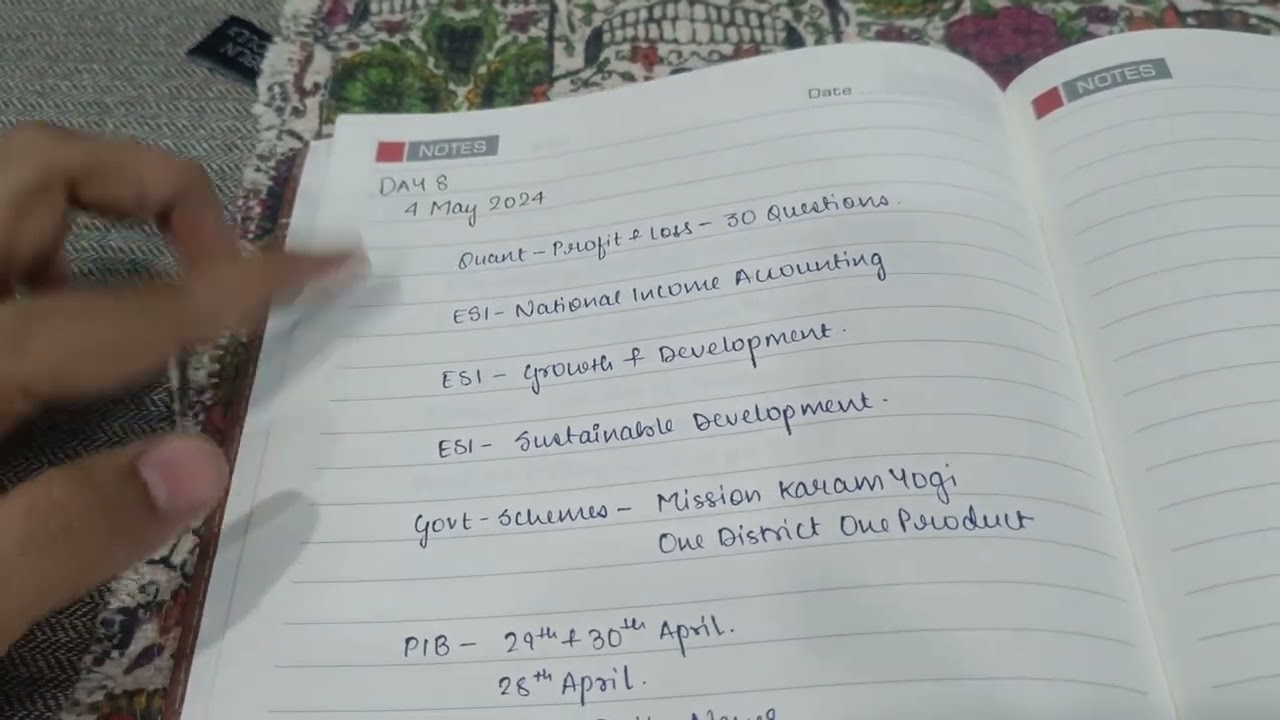 Date
NOTES
NOTES
DAY 8
4 May 2024
Quant - Profit & Loss - 30 Questions.
ESI - National Income Accounting
ESI - Growth & Development.
ESI - Sustainable Development.
Govt - Schemes - Mission Karam Yogi
One District One Product
PIB - 29th & 30th April.
28th April.